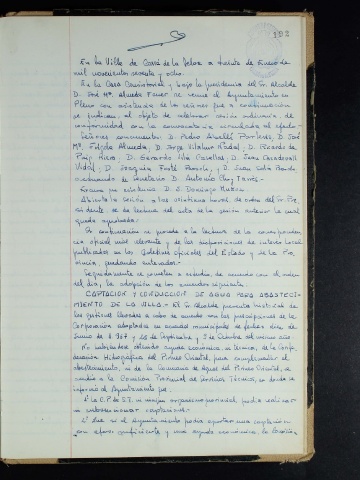 192
En la Villa de Cassá de la Selva a treinta de Enero de
mil novecientos sesenta y ocho.
En la Casa Consistorial y bajo la presidencia del Sr. Alcalde
D. José Mª. se reune el Ayuntamiento en
Pleno con asistencia de los señores que a continuación
se indican, al objeto de celebrar sesión ordinaria de
conformidad con la convocatoria circulada al efecto.
Señores concurrentes: D. Pedro D. José
Mª. D. Jorge Vilallonga Nadal, D. Ricardo de
Puig D. Gerardo D. Juan Casadevall
Vidal, D. Joaquin D. Juan
actuando de Secretario D. Antonio
Excusa su asistencia D. Domingo
Abierta la sesión a las veintiuna horas de orden del Sr. Pre-
sidente se da lectura del acta de la sesión anterior la cual
queda aprobada.
A continuación se procede a la lectura de la corresponden-
cia oficial más relevante y de las disposiciones de interés local
publicadas en los Boletines oficiales del Estado y de la Pro-
vincia, quedando enterados.
Seguidamente se someten a estudio, de acuerdo con el orden
del día, la adopción de los acuerdos siguientes:
CAPTACION Y CONDUCCION DE AGUA PARA ABASTECI-
MIENTO DE LA VILLA - El Sr. Alcalde presenta historial de
las gestiones llevadas a cabo de acuerdo con las prescripciones de la
Corporación adoptadas en acuerdos municipales de fechas
Junio de 1967, 25 de Septiembre, y 3 de Octubre del mismo año.
No habiéndose obtenido ayuda económica, ni técnica, de la Confe-
deración Hidrográfica del Pirineo Oriental, para complementar el
abastecimiento, ni de la Comisaria de Aguas del Pirineo Oriental, se
acudió a la Comisión Provincial de Servicios Técnicos, en donde se
informó al Ayuntamiento que:
1º La C.P. de S.T. ni ningun organismo provincial, podia realizar
ni subvencionar captaciones.
2º Que si el Ayuntamiento podia aportar una captación
con aforo suficiente y una ayuda económica, la Comisión